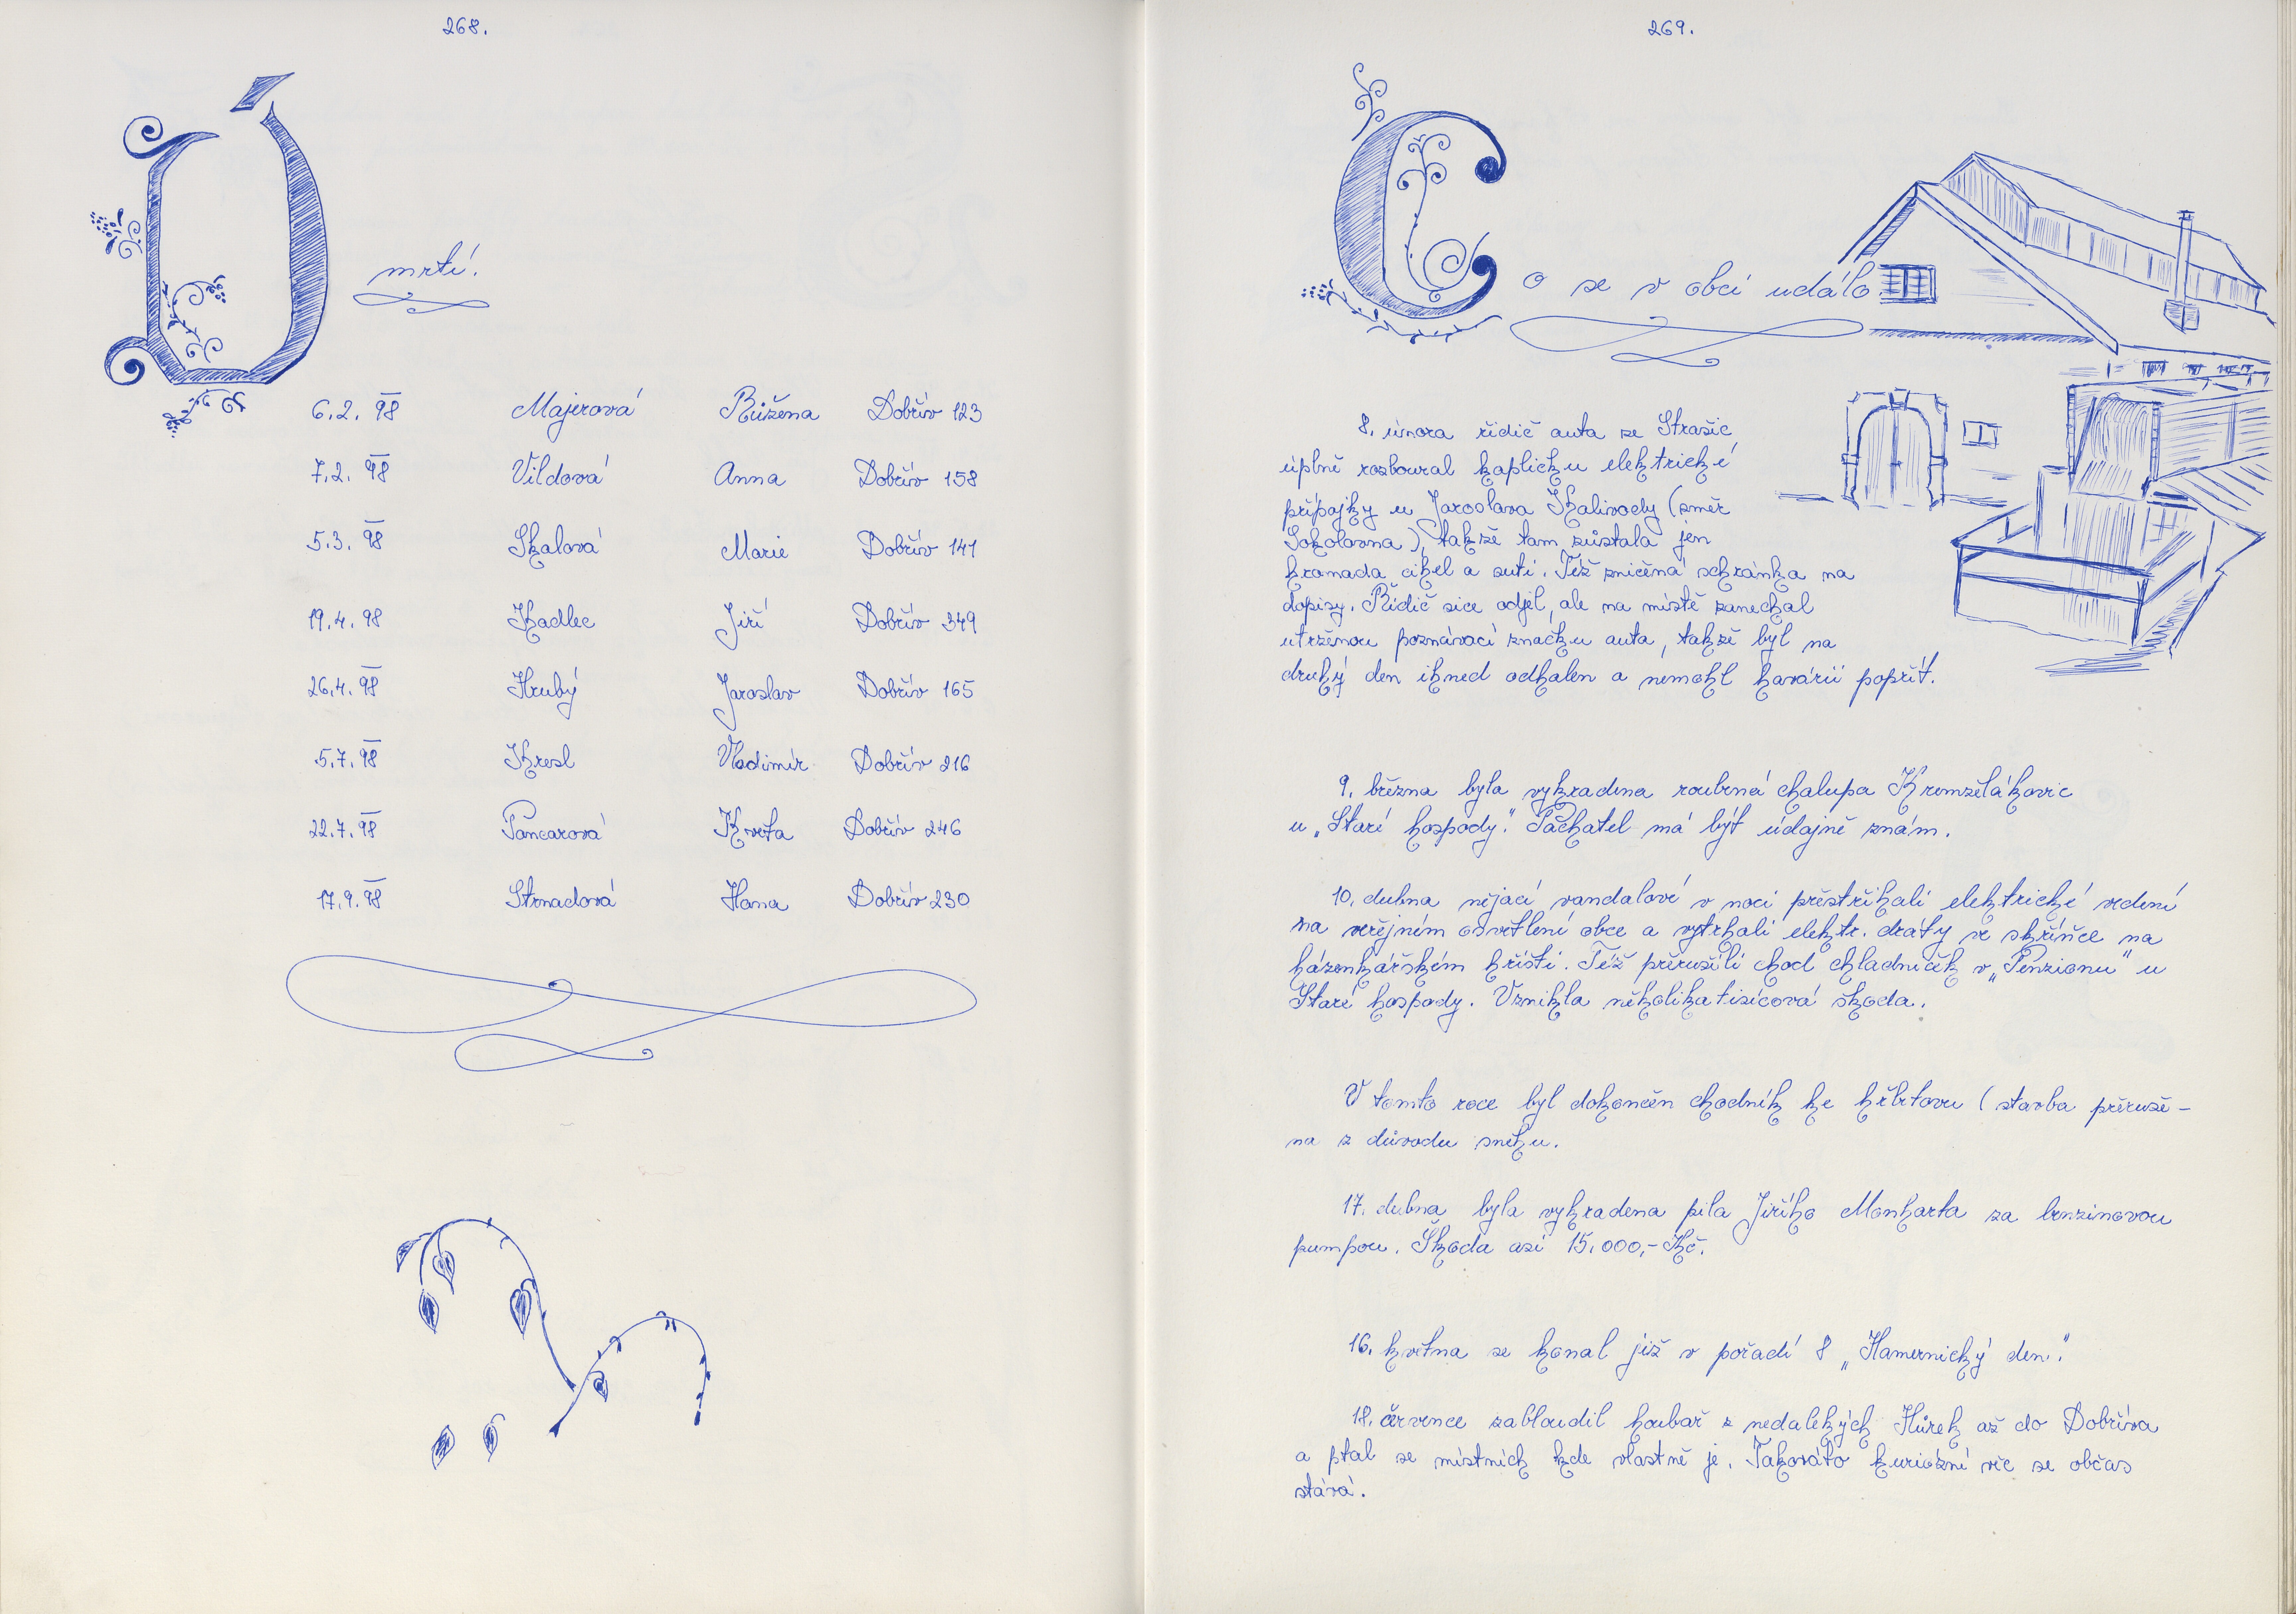 268.
Úmrtí.
6.2.98 Majerová Růžena Dobřív 123
7.2.98 Vildová Anna Dobřív 158
5.3.98 Skalová Marie Dobřív 141
19.4.98 Kadlec Jiří Dobřív 349
26.4.98 Hrubý Jaroslav Dobřív 165
5.7.98 Kresl Vladimír Dobřív 216
22.7.98 Pancarová Květa Dobřív 246
17.9.98 Strnadová Hana Dobřív 230
269.
Co se v obci událo
8. února řidič auta ze Strašic
úplně rozboural kapličku elektrické
přípojky u Jaroslava Skalivody (směr
Sokolovna), takže tam zůstala jen
hromada cihel a suti. Též zničená schránka na
dopisy. Řidič sice odjel, ale na místě zanechal
utrženou poznávací značku auta, takže byl na
druhý den ihned odhalen a nemohl havárii popřít.
9. března byla vykradena roubená chalupa Kremzelákovic
u „Staré hospody". Pachatel má být údajně znám.
10. dubna nějací vandalové v noci přestřihali elektrické vedení
na veřejném osvětlení obce a vytrhali elektr. dráty ve skříňce na
házenkářském hřišti. Též přerušili chod chladniček v „Penzionu" u
Staré hospody. Vznikla několikatisícová škoda.
V tomto roce byl dokončen chodník ke hřbitovu (stavba přeruše-
na z důvodu sněhu.
17. dubna byla vykradena pila Jiřího Monharta za benzinovou
pumpou. Škoda asi 15.000,- Kč.
16. května se konal již v pořadí 8 „Hamernický den."
18. července zabloudil houbař z nedalekých Hůrek až do Dobříva
a ptal se místních kde vlastně je. Takováto kuriózní věc se občas
stává.